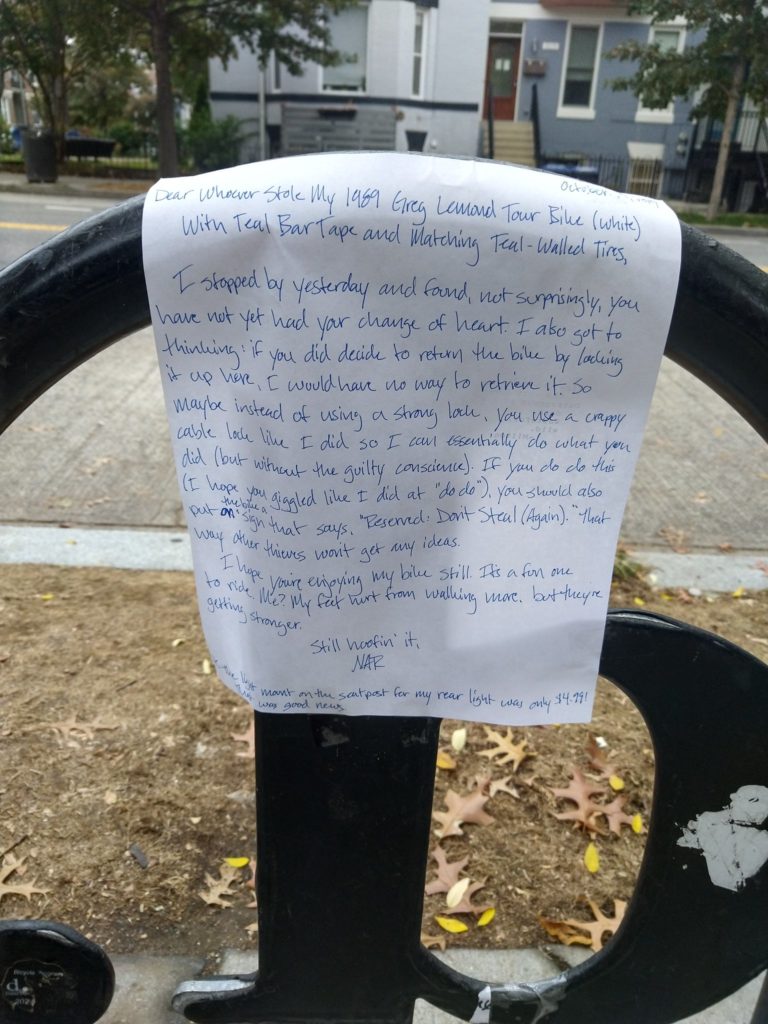 October
Dear Whoever Stole My 1989 Greg Lemond Tour Bike (White)
With Teal Bar Tape and Matching Teal-Walled Tires,
I stopped by yesterday and found, not surprisingly, you
have not yet had your change of heart. I also got to
thinking: if you did decide to return the bike by locking
it up here, I would have no way to retrieve it. So
maybe instead of using a strong lock, you use a crappy
cable lock like I did so I can essentially do what you
did (but without the guilty conscience). If you do do this
(I hope you giggled like I did at "do do"), you should also
put on the bike a sign that says, "Reserved: Don't Steal (Again)." That
way other thieves won't get any ideas.
I hope you're enjoying my bike still. It's a fun one
to ride. Me? My feet hurt from walking more, but they're
getting stronger.
Still hoofin' it,
NAR
light mount on the seatpost for my rear light was only $4.99!
was good news.
d.